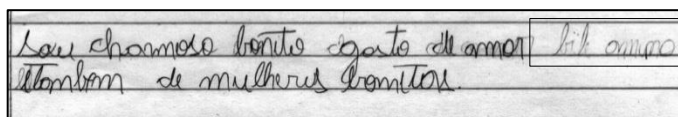 sou charmoso bonito gosto de amor
etambem de mulheres bonitas.